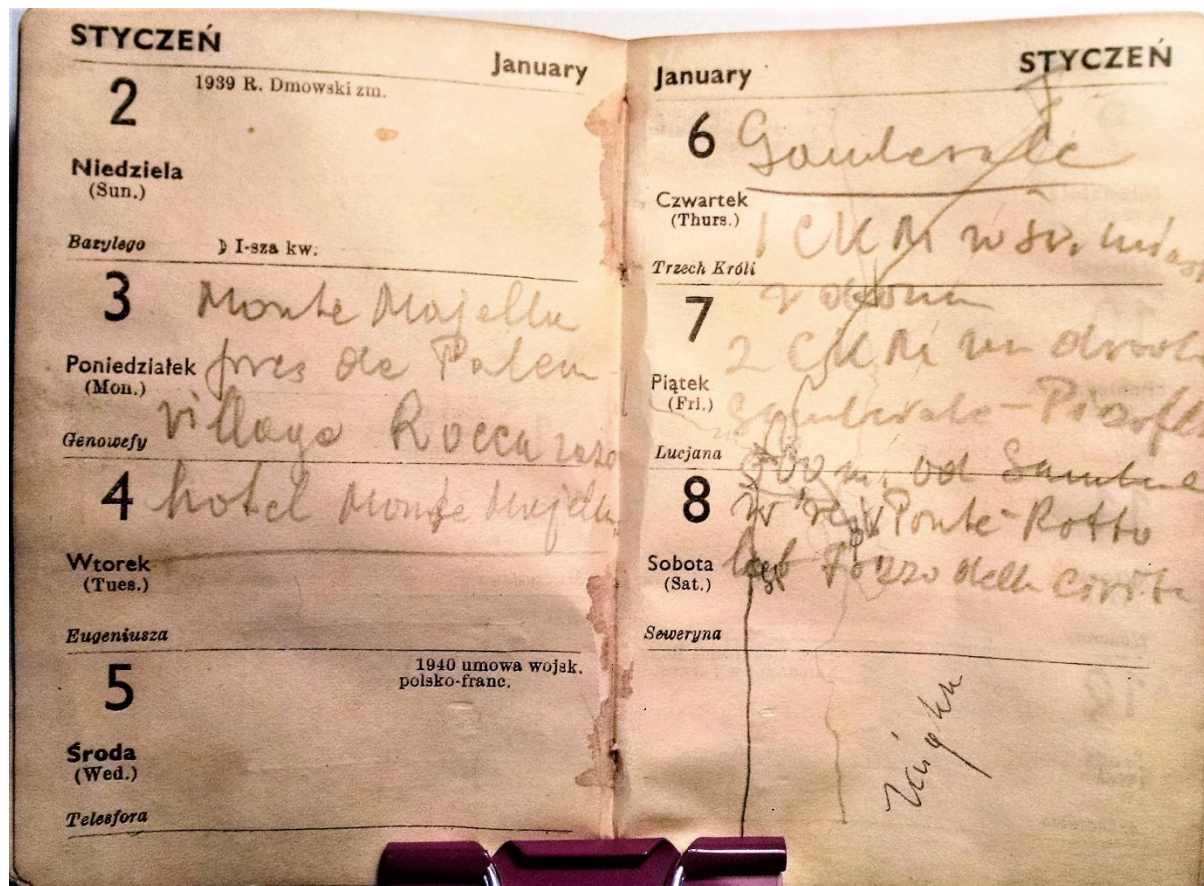 STYCZEŃ
January
2
1939 R. Dmowski zm.
Niedziela
(Sun.)
Bazylego
☽ I-sza kw.
3
Monte Majella
Poniedziałek
(Mon.)
pres de Palena
village Rocca
Genowefy
4
hotel Monte Majella
Wtorek
(Tues.)
Eugeniusza
5
1940 umowa wojsk.
polsko-franc.
Środa
(Wed.)
Telesfora
January
STYCZEŃ
6
Gamberale
Czwartek
(Thurs.)
1 CKM w
Trzech Króli
7
2 CKM
Piątek
(Fri.)
Gamberale - 
Lucjana
300 m. od
8
w Ponte-Rotto
Sobota
(Sat.)
lub della
Seweryna